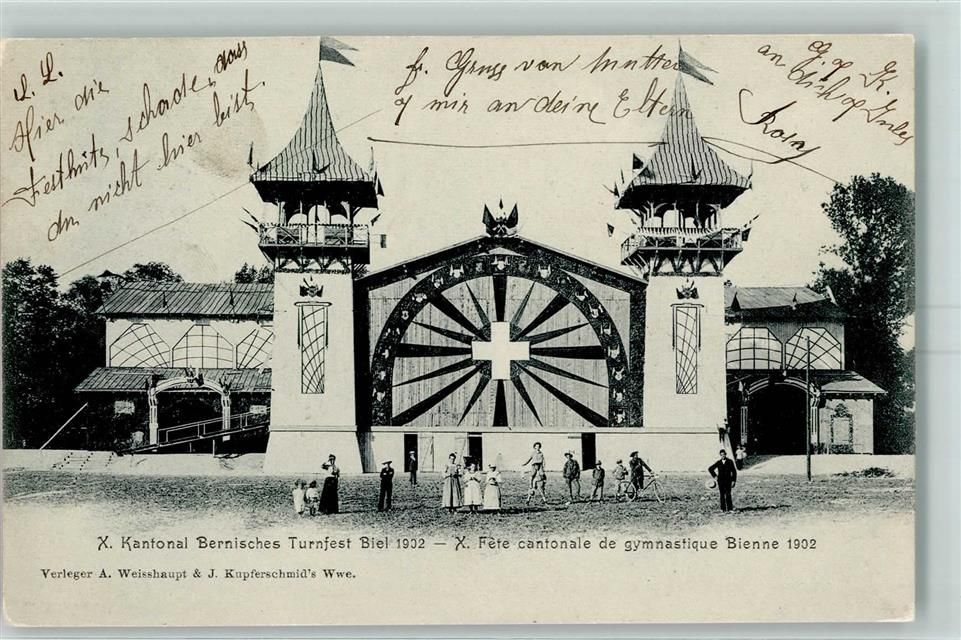 L. L.
Hier die
Festhüts, schade, dass
du nicht hier bist.
fr. Gruss von Mutter
& mir an deine Eltern
an dich
Rosa
X. Kantonal Bernisches Turnfest Biel 1902 — X. Fête cantonale de gymnastique Bienne 1902
Verleger A. Weisshaupt & J. Kupferschmid's Wwe.